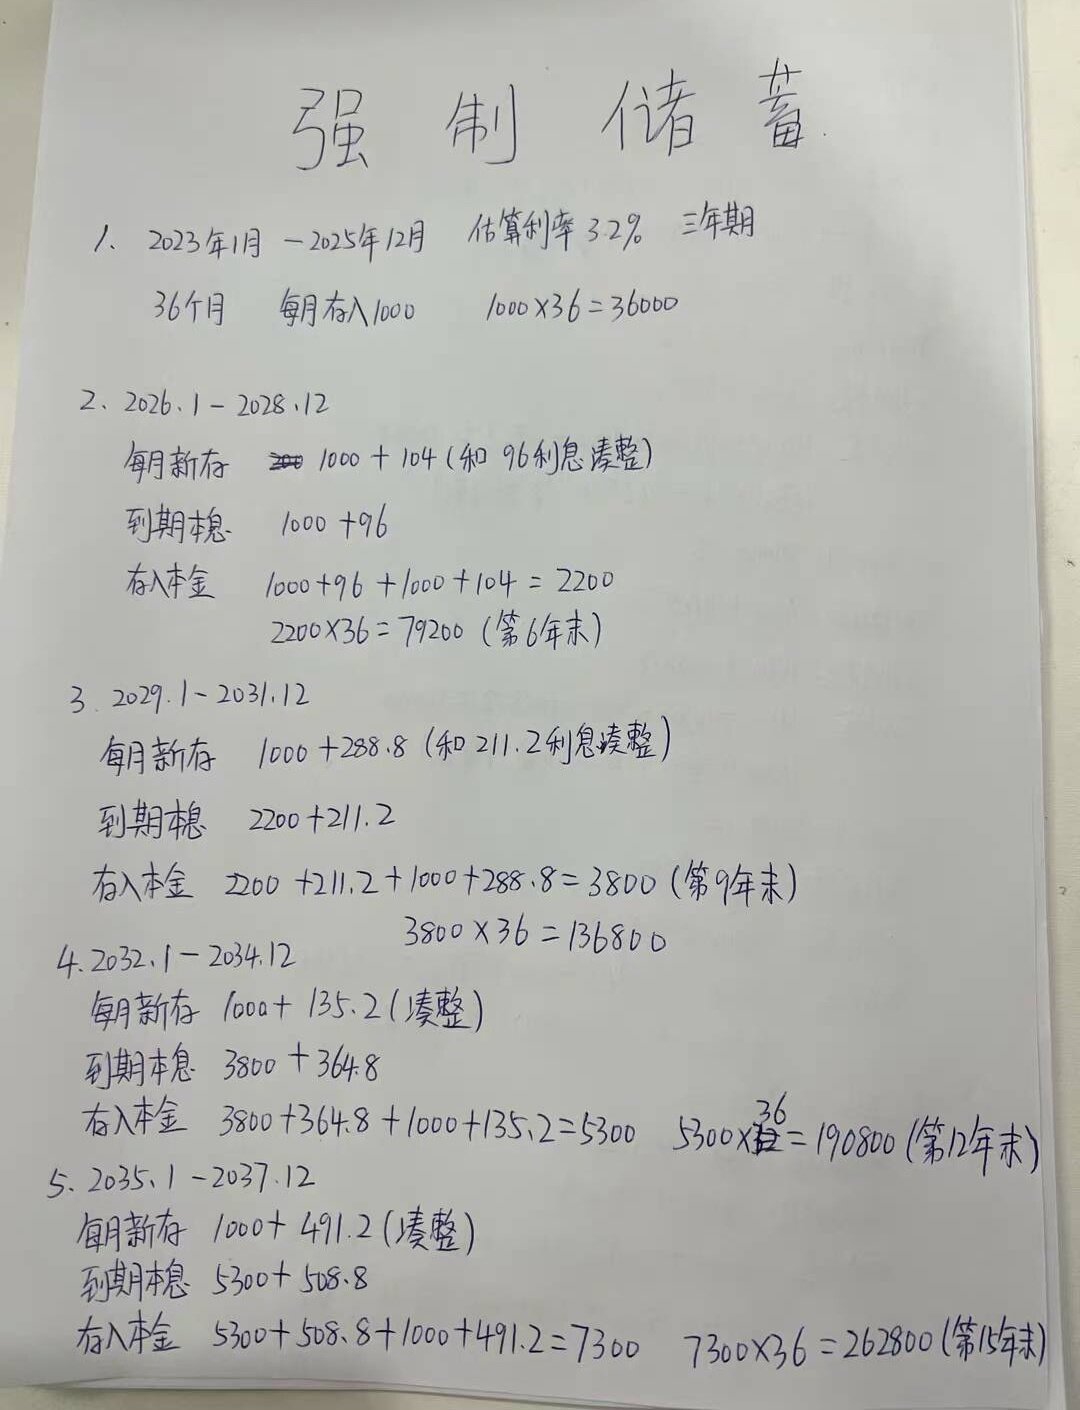 强制储蓄
1、 2023年1月 - 2025年12月 估算利率3.2% 三年期
36个月 每月存入1000 1000×36=36000
2、 2026.1 - 2028.12
每月新存 1000 + 104 (和 96利息凑整)
到期本息 1000 +96
存入本金 1000+96 +1000+104 = 2200
2200×36 = 79200 (第6年末)
3. 2029.1 - 2031.12
每月新存 1000 +288.8 (和 211.2利息凑整)
到期本息 2200+211.2
存入本金 2200 +211.2+1000+288.8=3800 (第9年末)
3800 ×36 =136800
4. 2032.1 - 2034.12
每月新存 1000+ 135.2 (凑整)
到期本息 3800 + 364.8
存入本金 3800+364.8 +1000+135.2=5300 5300×36=190800 (第12年末)
5. 2035.1 - 2037.12
每月新存 1000+ 491.2 (凑整)
到期本息 5300+ 508.8
存入本金 5300+508.8+1000+491.2=7300 7300×36 =262800 (第15年末)